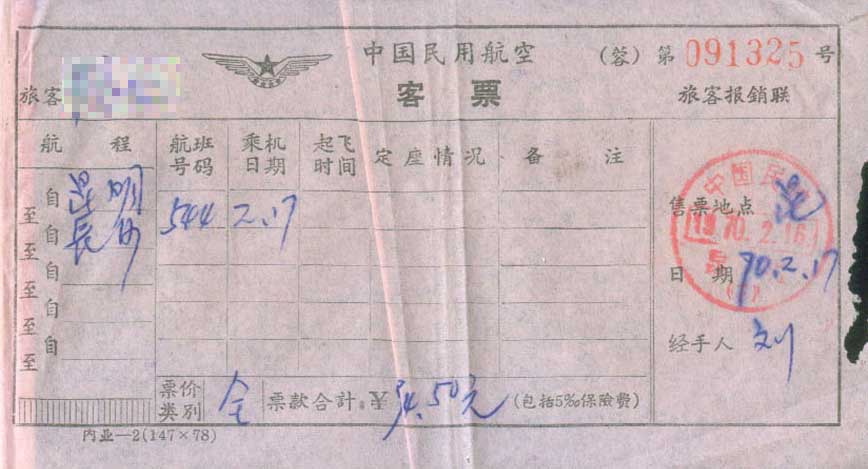 中国民用航空 (蓉) 第 091325 号
客票
旅客
旅客报銷联
航程 航班号码 乘机日期 起飞时间 定座情况 备注
自 昆明
至 長沙 544 2.17
自
至
自
至
自
至
自
至
售票地点 昆
中国民
1970.2.16
日期 70.2.17
经手人 刘
票价类别 全 票款合計 ¥ 94.50元 (包括5‰保險費)
内业—2(147×78)